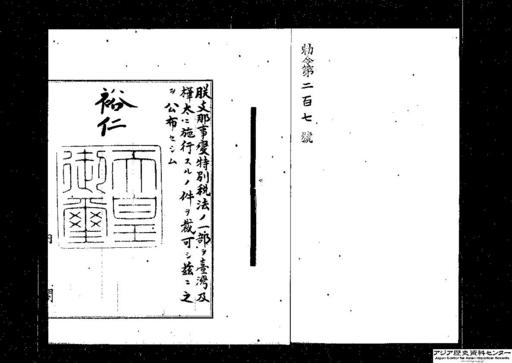 勅令第二百七號
朕支那事變特別税法ノ一部ヲ臺灣及
樺太ニ施行スルノ件ヲ裁可シ茲ニ之
ヲ公布セシム
裕仁
天皇
御璽
内
閣
アジア歴史資料センター
Japan Center for Asian Historical Records